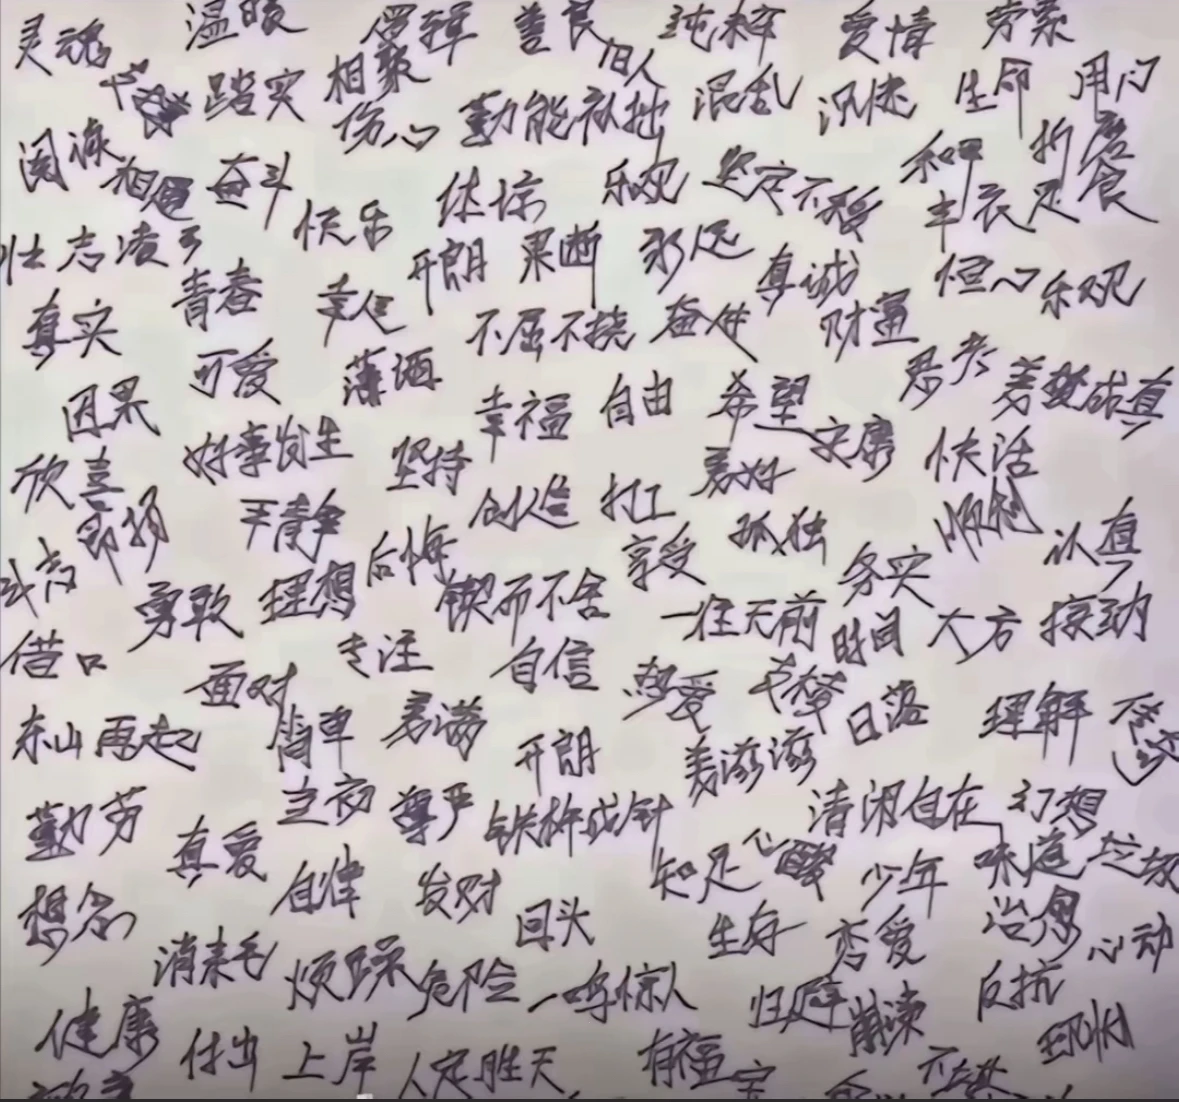 灵魂 温暖 逻辑 善良 纯粹 爱情 劳累
踏实 相聚 旧人 混乱 生命
伤心 勤能补拙
阅读 相遇 奋斗 体谅 乐观 坚定不移 和平 折磨
快乐 丰衣足食
壮志凌云 开朗 果断 永远 真诚 恒心 乐观
青春 幸运
真实 不屈不挠 奋进 财富
可爱 潇洒 思考 美梦成真
因果 幸福 自由 希望 安康
好事发生 坚持 美好 快活
欣喜 创造 打工
昂扬 平静 孤独 顺利 认真
后悔 享受 务实
勇敢 理想 锲而不舍 一往无前 时间 大方 掠夺
借口 专注 自信
面对 热爱 日落 理解
东山再起 简单 美满 开朗 美滋滋
勤劳 之初 尊严 铁杵成针 清闲自在 幻想
真爱 知足 心酸 少年 味道 垃圾
想念 自律 发财 回头 生存 恋爱 治愈 心动
消耗 烦躁 危险 一鸣惊人 归途 反抗
健康 付出 上岸 人定胜天 有福 现状